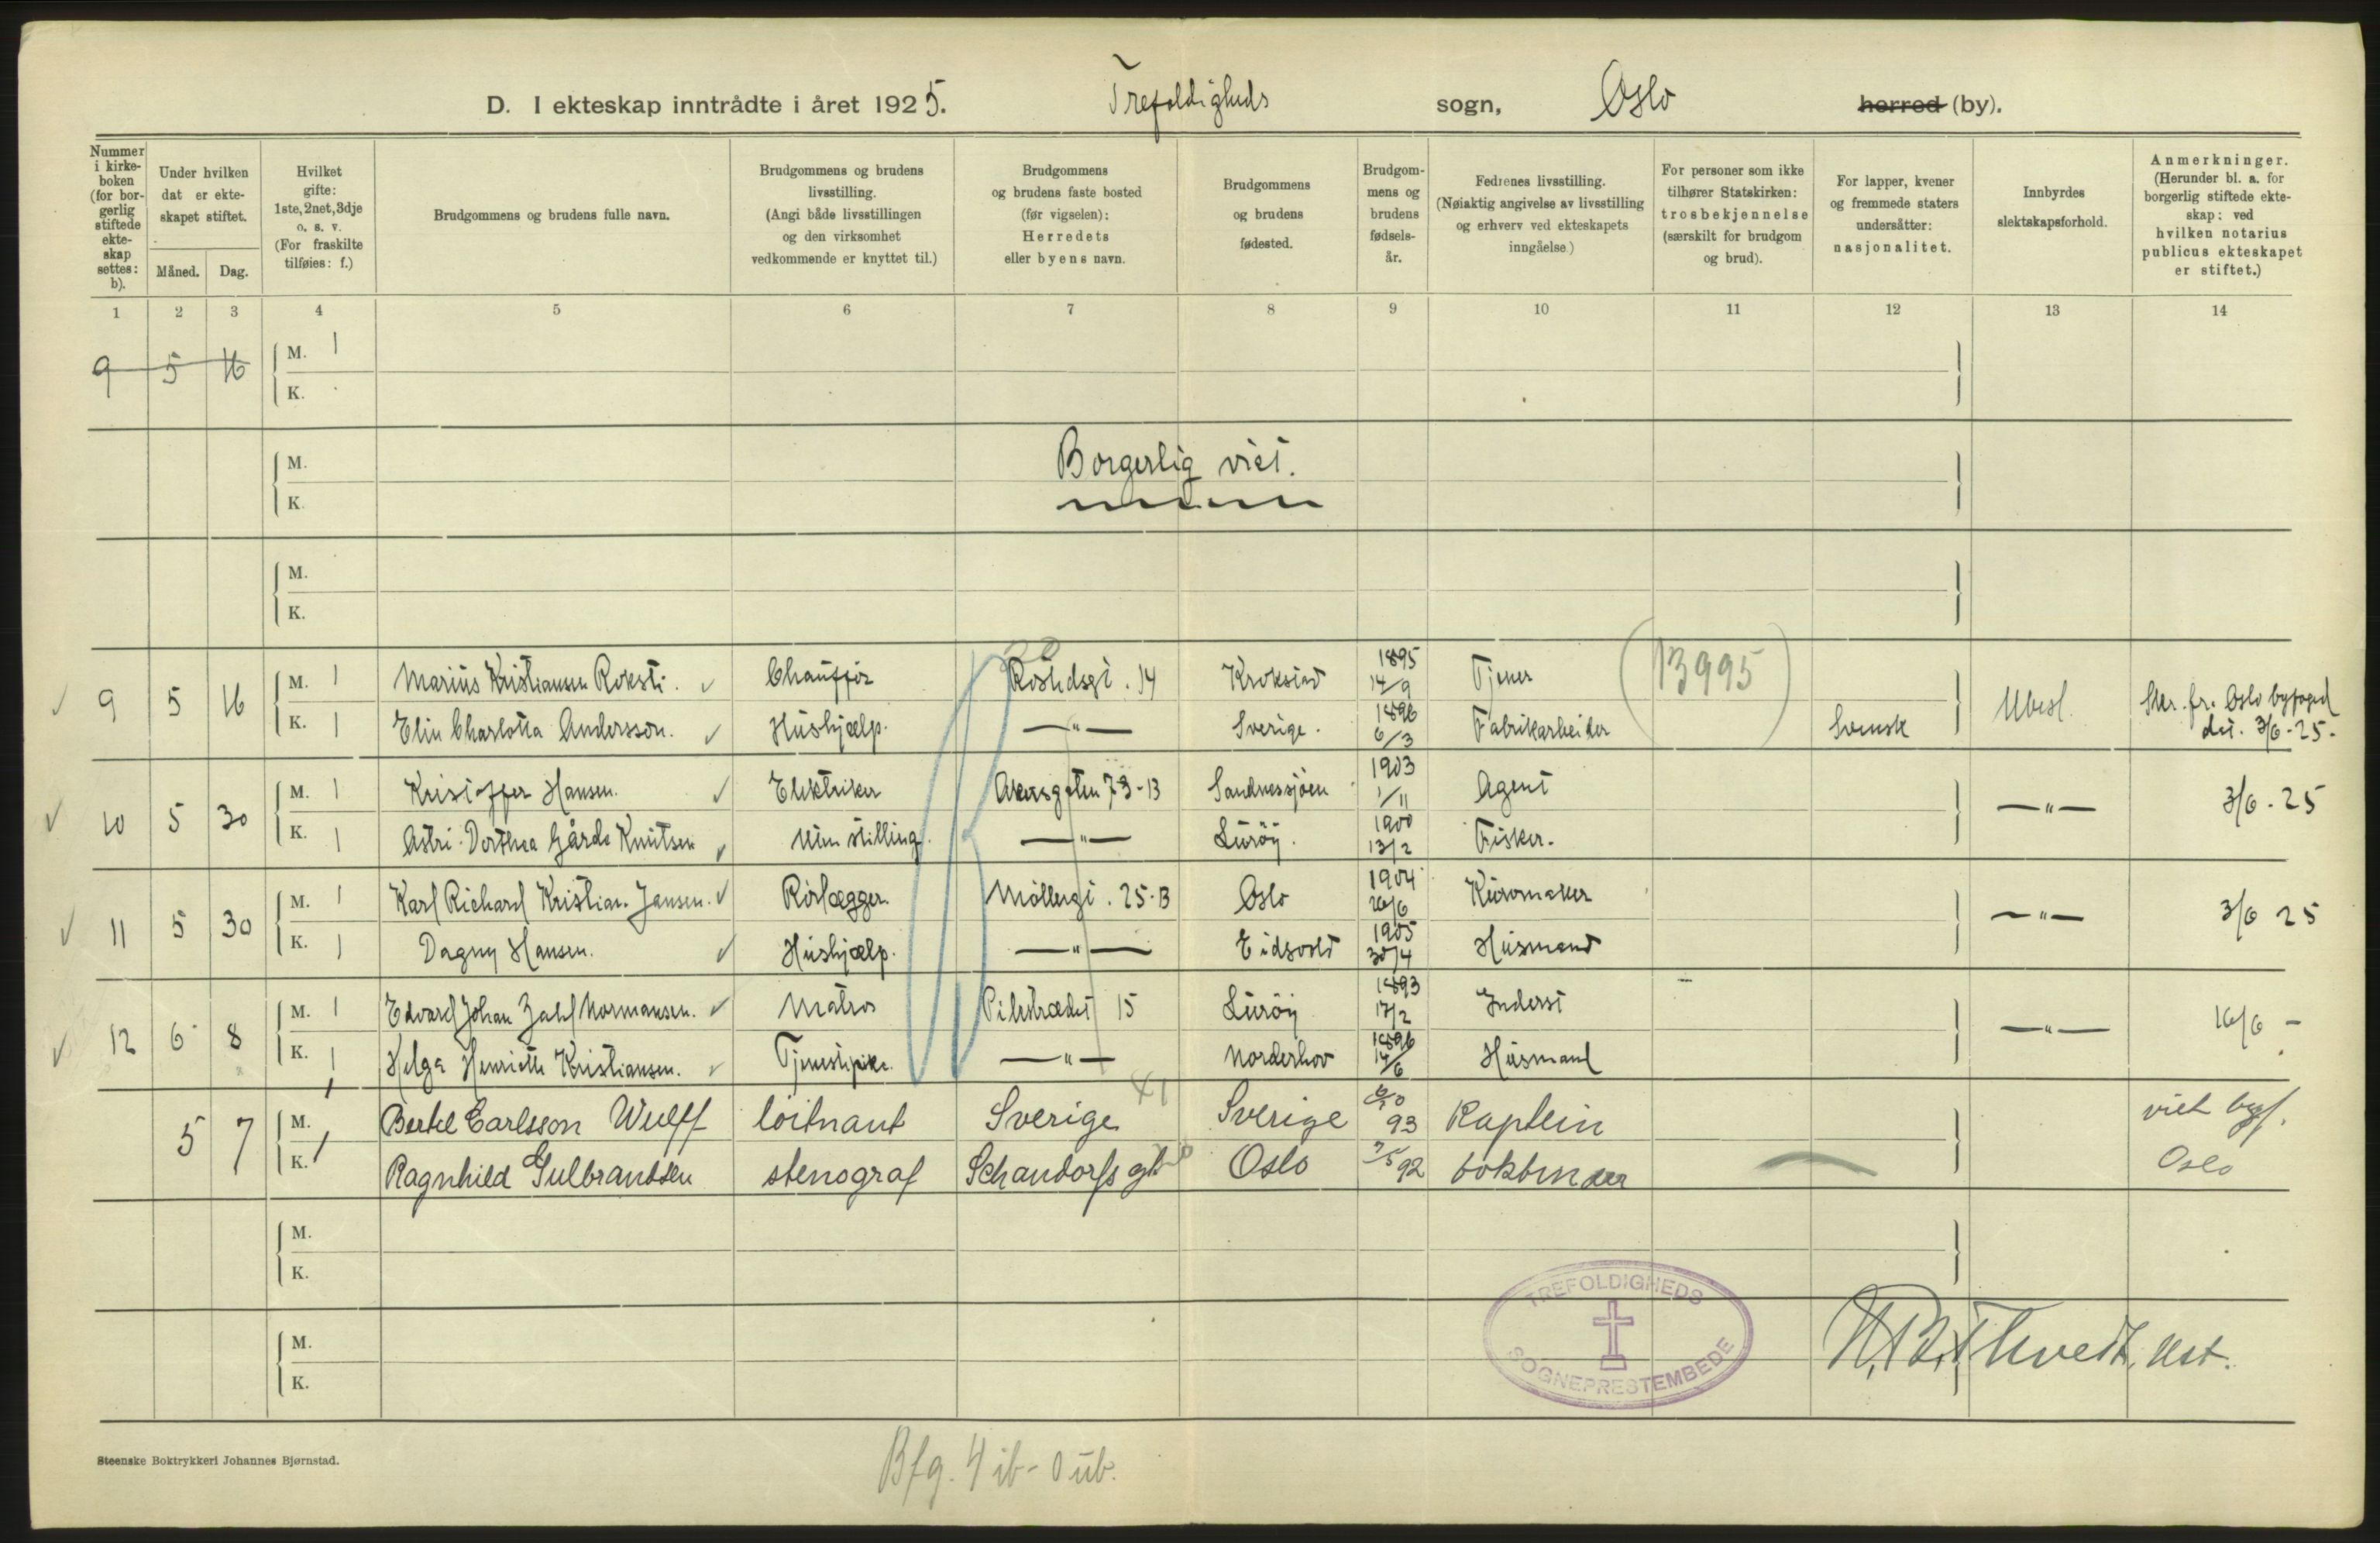 D. I ekteskap inntrådte i året 1925. Trefoldigheds sogn, Oslo herred (by).
Nummer i kirkeboken (for borgerlig stiftede ekteskap settes: b).
Under hvilken dat er ekteskapet stiftet.
Måned. Dag.
Hvilket gifte: 1ste, 2net, 3dje o. s. v. (For fraskilte tilføies: f.)
Brudgommens og brudens fulle navn.
Brudgommens og brudens livsstilling. (Angi både livsstillingen og den virksomhet vedkommende er knyttet til.)
Brudgommens og brudens faste bosted (før vigselen): Herredets eller byens navn.
Brudgommens og brudens fødested.
Brudgommens og brudens fødselsår.
Fedrenes livsstilling. (Nøiaktig angivelse av livsstilling og erhverv ved ekteskapets inngåelse.)
For personer som ikke tilhører Statskirken: trosbekjennelse (særskilt for brudgom og brud).
For lapper, kvener og fremmede staters undersåtter: nasjonalitet.
Innbyrdes slektskapsforhold.
Anmerkninger. (Herunder bl. a. for borgerlig stiftede ekteskap: ved hvilken notarius publicus ekteskapet er stiftet.)
1 2 3 4 5 6 7 8 9 10 11 12 13 14
9 5 16 M. 1
K.
M. Borgerlig viet.
K.
M.
K.
9 5 16 M. 1 Marius Kristiansen Roksti. Chauffør 14 1895 14/9 Tjener (13995) Ubesl. Skr. fr. Oslo byfoged
K. 1 Elin Charlotta Andersson. Hushjælp. —"— Sverige. 1896 6/3 Fabrikarbeider Svensk dat. 3/6-25.
10 5 30 M. 1 Kristoffer Hansen. Elektriker Akersgaten 73-B Sandnessjøen 1903 1/11 Agent —"— 3/6-25
K. 1 Astri Dorthea Gårda Knutsen Uten stilling. —"— Lurøy. 1900 13/2 Fisker.
11 5 30 M. 1 Karl Richard Kristian Jansen. Rørlægger. Møllergt. 25-B Oslo 1904 26/6 Kurvmaker —"— 3/6 25
K. 1 Dagny Hansen. Hushjælp. —"— Eidsvold 1905 30/4 Husmand
12 6 8 M. 1 Edvard Johan Zahl Normansen. Matros Pilestrædet 15 Lurøy 1893 17/2 Inderst —"— 16/6 -
K. 1 Helga Henriette Kristiansen. Tjenestepike. —"— Norderhov 1896 14/6 Husmand
5 7 M. 1 Bertel Carlsson Wulff løitnant Sverige 41 Sverige 93 Kaptein viet byf.
K. 1 Ragnhild Gulbrandsen stenograf Schandorfs gt Oslo 7/5 92 bokbinder Oslo
M.
K.
M.
K.
TREFOLDIGHEDS
SOGNEPRESTEMBEDE
Steenske Boktrykkeri Johannes Bjørnstad.
Bfg. 4 ib - 0 ub.